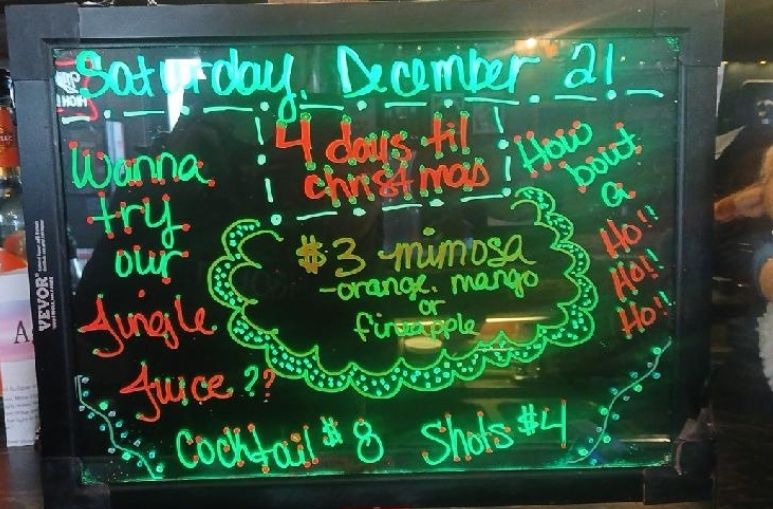 Saturday, December 21
4 days til
christmas
Wanna
try
our
Jingle
Juice ??
$3 mimosa
-orange, mango
or
fineapple
How
bout
a
Ho!!
Ho!!
Ho!!
Cocktail $8 Shots $4
VEVOR